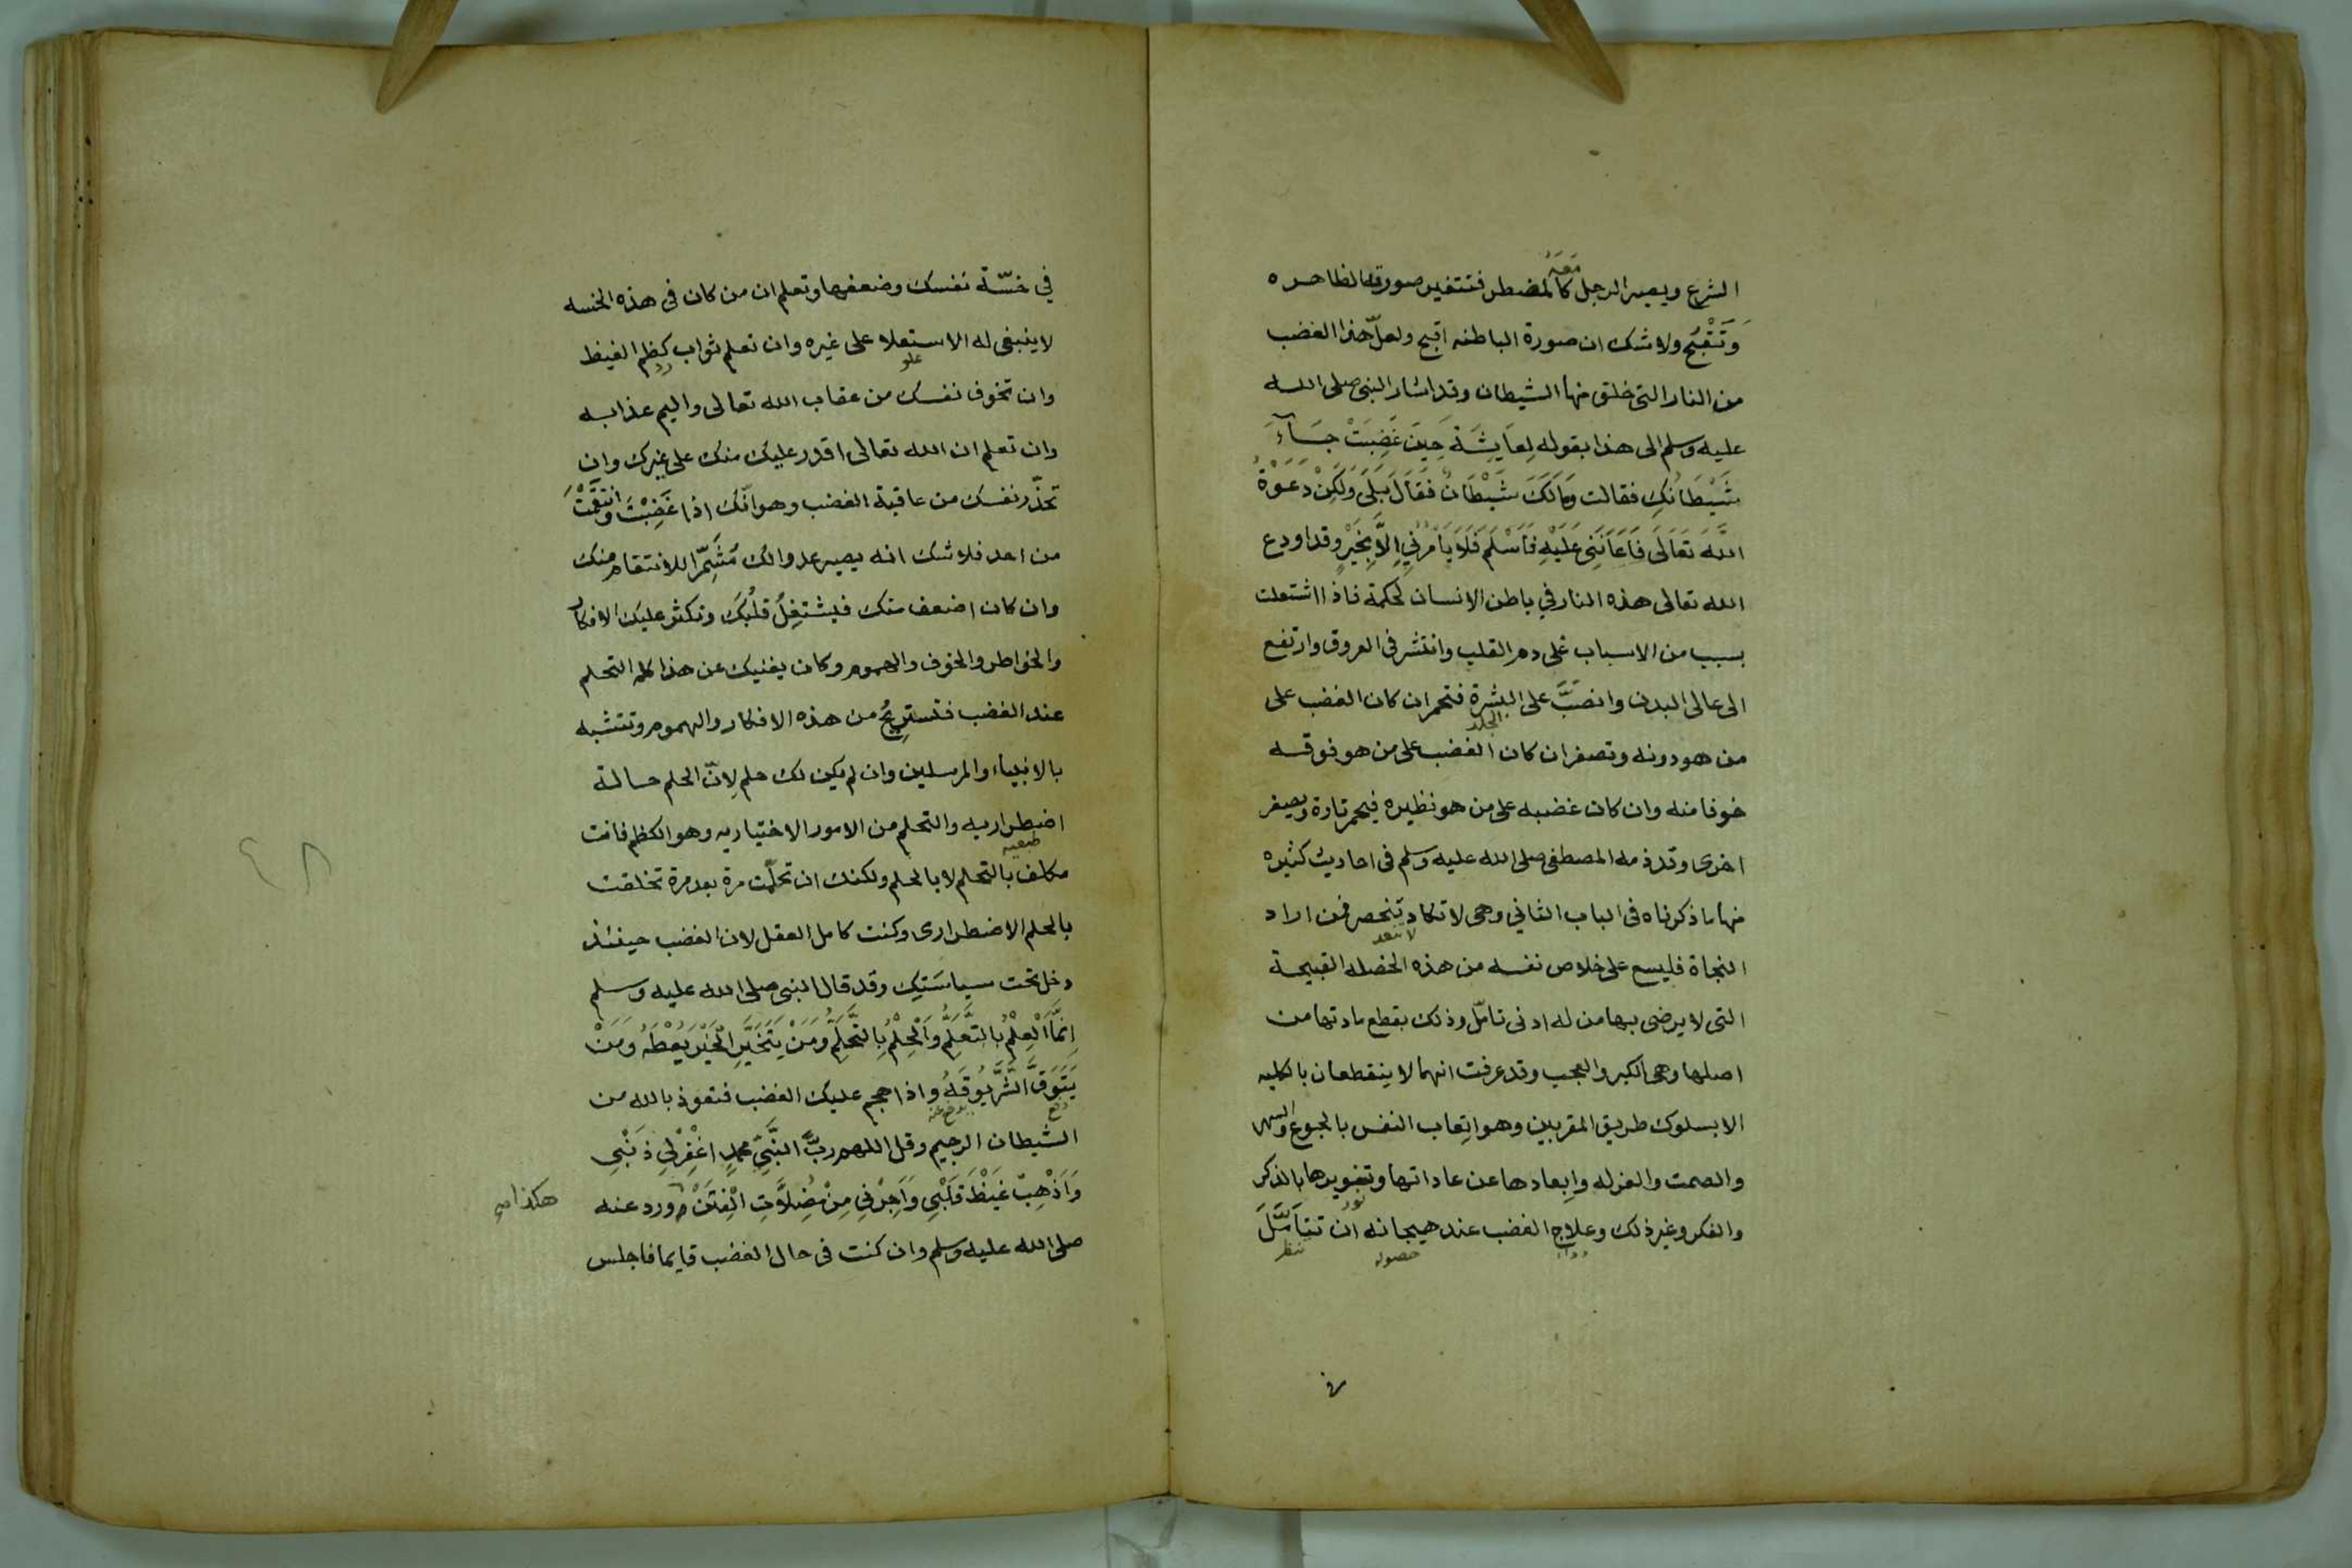 الشرع ويصير الرجل معه كالمضطر فتتغير صورته الظاهره
وَتَقْبُح ولا شك ان صورة الباطنه اقبح ولعلّ هذا الغضب
من النار التى خلق منها الشيطان وقد اشار النبى صلى الله
عليه وسلم الى هذا بقوله لِعَايِشَةَ حِينَ غَضِبَتْ جَآءَ
شَيْطَانُكِ فقالت وَمَا لَكَ شَيْطَانٌ فَقَالَ بَلَى وَلَكِنْ دَعَوْتُ
اللَّهَ تَعَالَى فَاَعَانَنِى عَلَيْهِ فَاَسْلَمَ فَلَا يَاْمُرُنِي اِلَّا بِخَيْرٍ وقد اودع
الله تعالى هذه النار في باطن الانسان لحكمة فاذا اشتعلت
بسبب من الاسباب غلى دم القلب وانتشر فى العروق وارتفع
الى عالى البدن وانصَبَّ على البشرة فتحمر ان كان الغضب على
الجلد
من هو دونه وتصفر ان كان الغضب على من هو فوقه
خوفا منه وان كان غضبه على من هو نظيره فيحمر تارة ويصفر
اخرى وقد ذمه المصطفى صلى الله عليه وسلم فى احاديث كثيره
منها ما ذكرناه فى الباب الثاني وهى لا تكاد تنحصر فمن اراد
لا تعد
النجاة فليسع على خلاص نفسه من هذه الخصله القبيحة
التى لا يرضى بها من له ادنى تامّل وذلك بقطع مادتها من
اصلها وهى الكبر والعجب وقد عرفت انهما لا ينقطعان بالكليه
الا بسلوك طريق المقربين وهو اتعاب النفس بالجوع والسهر
والصمت والعزله وابعادها عن عاداتها وتنويرها بالذكر
نور
والفكر وغير ذلك وعلاج الغضب عند هيجانه ان تتَأَمَّلَ
دواء حصوله تنظر
في
في خسّة نفسك وضعفها وتعلم ان من كان فى هذه الخسه
لا ينبغى له الاستعلا على غيره وان تعلم ثواب كظم الغيظ
علو رد
وان تخوف نفسك من عقاب الله تعالى واليم عذابه
وان تعلم ان الله تعالى اقدر عليك منك على غيرك وان
تحذّر نفسك من عاقبة الغضب وهو انّك اذا غَضِبْتَ وَانْتَقَمْتَ
من احد فلا شك انه يصير عدوا لك مُشَمِّرًا للانتقام منك
وان كان اضعف منك فيشتغِلُ قلْبُكَ وتكثر عليك الافكار
والخواطر والخوف والهموم وكان يغنيك عن هذا كله التحلم
عند الغضب فتستريحُ من هذه الافكار والهموم وتتشبه
بالانبياء والمرسلين وان لم يكن لك حلم لِانّ الحلم حالة
اضطراريه والتحلم من الامور الاختياريه وهو الكظم فانت
طبعيه
مكلف بالتحلم لا بالحلم ولكنك ان تحلّمت مرة بعد مرة تخلقت
بالحلم الاضطرارى وكنت كامل العقل لان الغضب حينئذ
دخل تحت سياسَتِك وقد قال النبى صلى الله عليه وسلم
اِنَّمَا الْعِلْمُ بِالتَّعَلُّمِ وَالْحِلْمُ بِالتَّحَلُّمِ وَمَنْ يَتَخَيَّرِ الْخَيْرَ يُعْطَهُ وَمَنْ
يَتَوَقَّ الشَّرَّ يُوقَهُ واذا هجم عليك الغضب فتعوذ بالله من
دفع يدفع عنه
الشيطان الرجيم وقل اللهم ربَّ النَّبِيِّ محمدٍ اغْفِرْلِي ذَنْبِى
وَاَذْهِبْ غَيْظَ قَلْبِي وَاَجِرْنِي مِنْ مُضِلَّاتِ الْفِتَنْ ورد عنه
هكذا
صلى الله عليه وسلم وان كنت فى حال الغضب قايما فاجلس